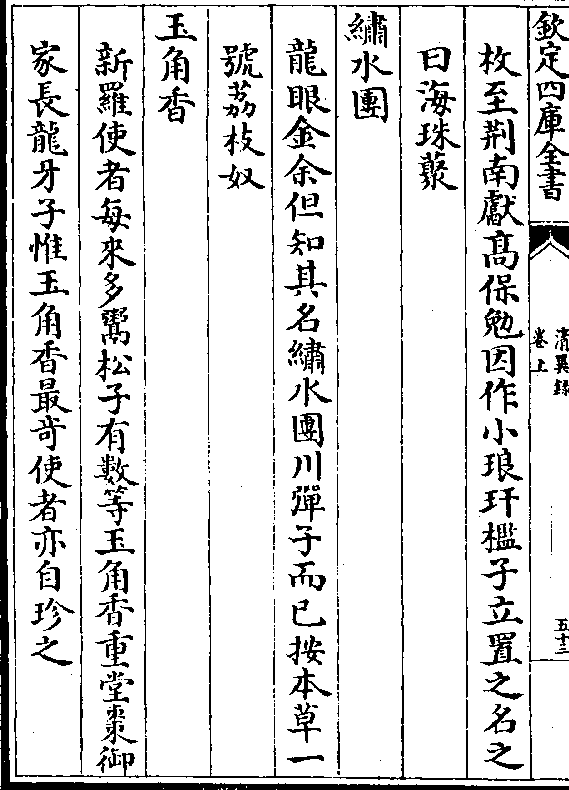 欽定四庫全書
清異錄
卷上
五十三
枚至荆南獻髙保勉因作小琅玕檻子立置之名之
曰海珠藂
繡水團
龍眼金余但知其名繡水團川彈子而已按本草一
號荔枝奴
玉角香
新羅使者每來多鬻松子有數等玉角香重堂棗御
家長龍牙子惟玉角香最竒使者亦自珍之